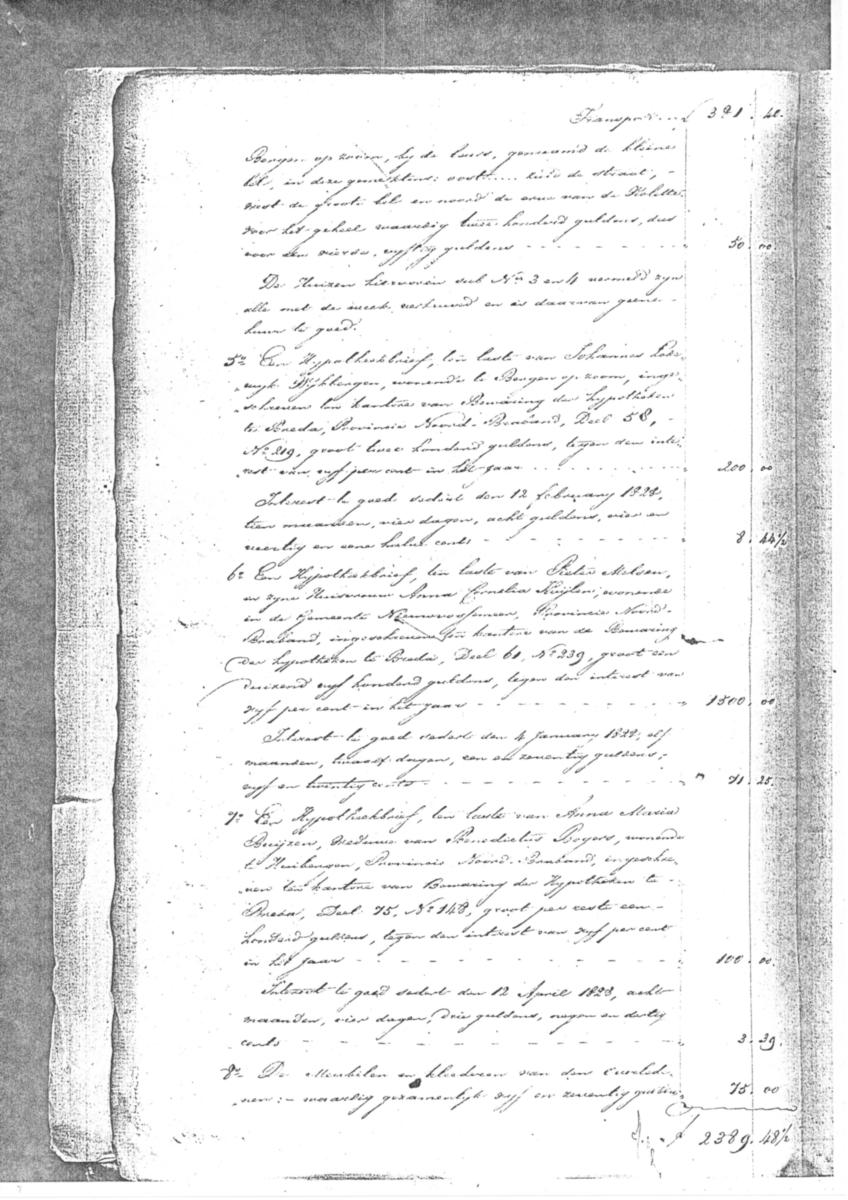 Transport . . . ƒ 381. 40.
Bergen op zoom, by de beurs, genaamd de kleine
hil, in deze gemeente: oost . . . . zuid de straat, -
west de groote hil en noord de erve van de
voor het geheel waardig twee honderd guldens, dus
voor een vierde, vyftig guldens - - - - - - 50. 00.
De Huizen hiervooren sub Nos 3 en 4 vermeld zyn
alle met de week verhuurd en is daarvan geene -
huur te goed.
5o Een Hypotheekbrief, ten laste van Johannes Lode-
wyk Wijkbergen, wonende te Bergen op zoom, inge-
schreven ten kantore van Bewaring der hypotheken
te Breda, Provincie Noord-Braband, Deel 58, -
No 219, groot twee honderd guldens, tegen den inte-
rest van vyf per cent in het jaar . . . . . . . . . 200 00
Interest te goed sedert den 12 february 1828,
tien maanden, vier dagen, acht guldens, vier en
veertig en eene halve cents - - - - - - 8. 44½
6o Een Hypotheekbrief, ten laste van Pieter Melsen,
en zyne Huisvrouw Anna Cornelia Kuylen, wonende
in de Gemeente Nieuwvossemeer, Provincie Noord-
Braband, ingeschreven ten kantore van de Bewaring
der hypotheken te Breda, Deel 61, No 239, groot een
duizend vyf honderd guldens, tegen den interest van
vyf per cent in het jaar - - - - - - 1500. 00
Interest te goed sedert den 4 January 1828, elf
maanden, twaalf dagen, een en zeventig guldens,
vyf en twintig cents - - - - - - 71. 25.
7o Een Hypotheekbrief, ten laste van Anna Maria
Buijzen, Weduwe van Benedictus Bogers, wonende
te Huibergen, Provincie Noord-Braband, ingeschre-
ven ten kantore van Bewaring der Hypotheken te -
Breda, Deel 75, No 148, groot per reste een -
honderd guldens, tegen den interest van vyf per cent
in het jaar - - - - - - 100. 00.
Interest te goed sedert den 12 April 1828, acht
maanden, vier dagen, drie guldens, negen en dertig
cents - - - - - - 3. 39.
8o De Meubelen en kleederen van den overlede-
nen: - waardig gezamenlyk vyf en zeventig guldens 75. 00
ƒ 2389. 48½